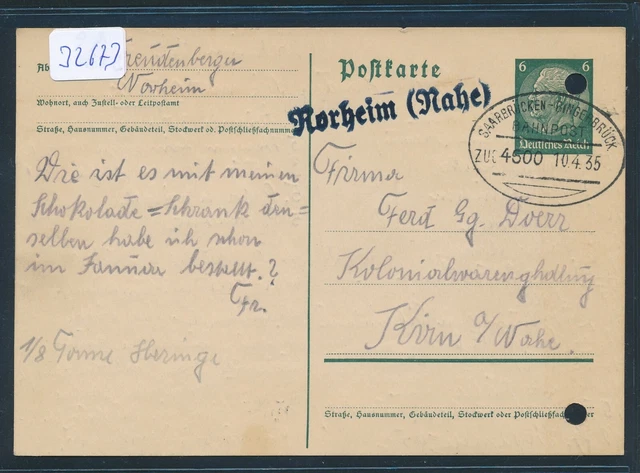 32673
Freudenberger
Norheim
Wohnort, auch Zustell- oder Leitpostamt
Straße, Hausnummer, Gebäudeteil, Stockwerk od. Postschließfachnummer
Die ist es mit meinen
Schokolade=Schrank den=
selben habe ich schon
im Januar bestellt.?
Fr.
1/8 Tonne Heringe
Postkarte
6 6
Deutsches Reich
Norheim (Nahe)
SAARBRÜCKEN-BINGERBRÜCK
BAHNPOST
ZUG 4500 10.4.35
Firma
Ferd Gg. Doerr
Kolonialwarenhdlung
Kirn a/Nahe.
Straße, Hausnummer, Gebäudeteil, Stockwerk oder Postschließfach